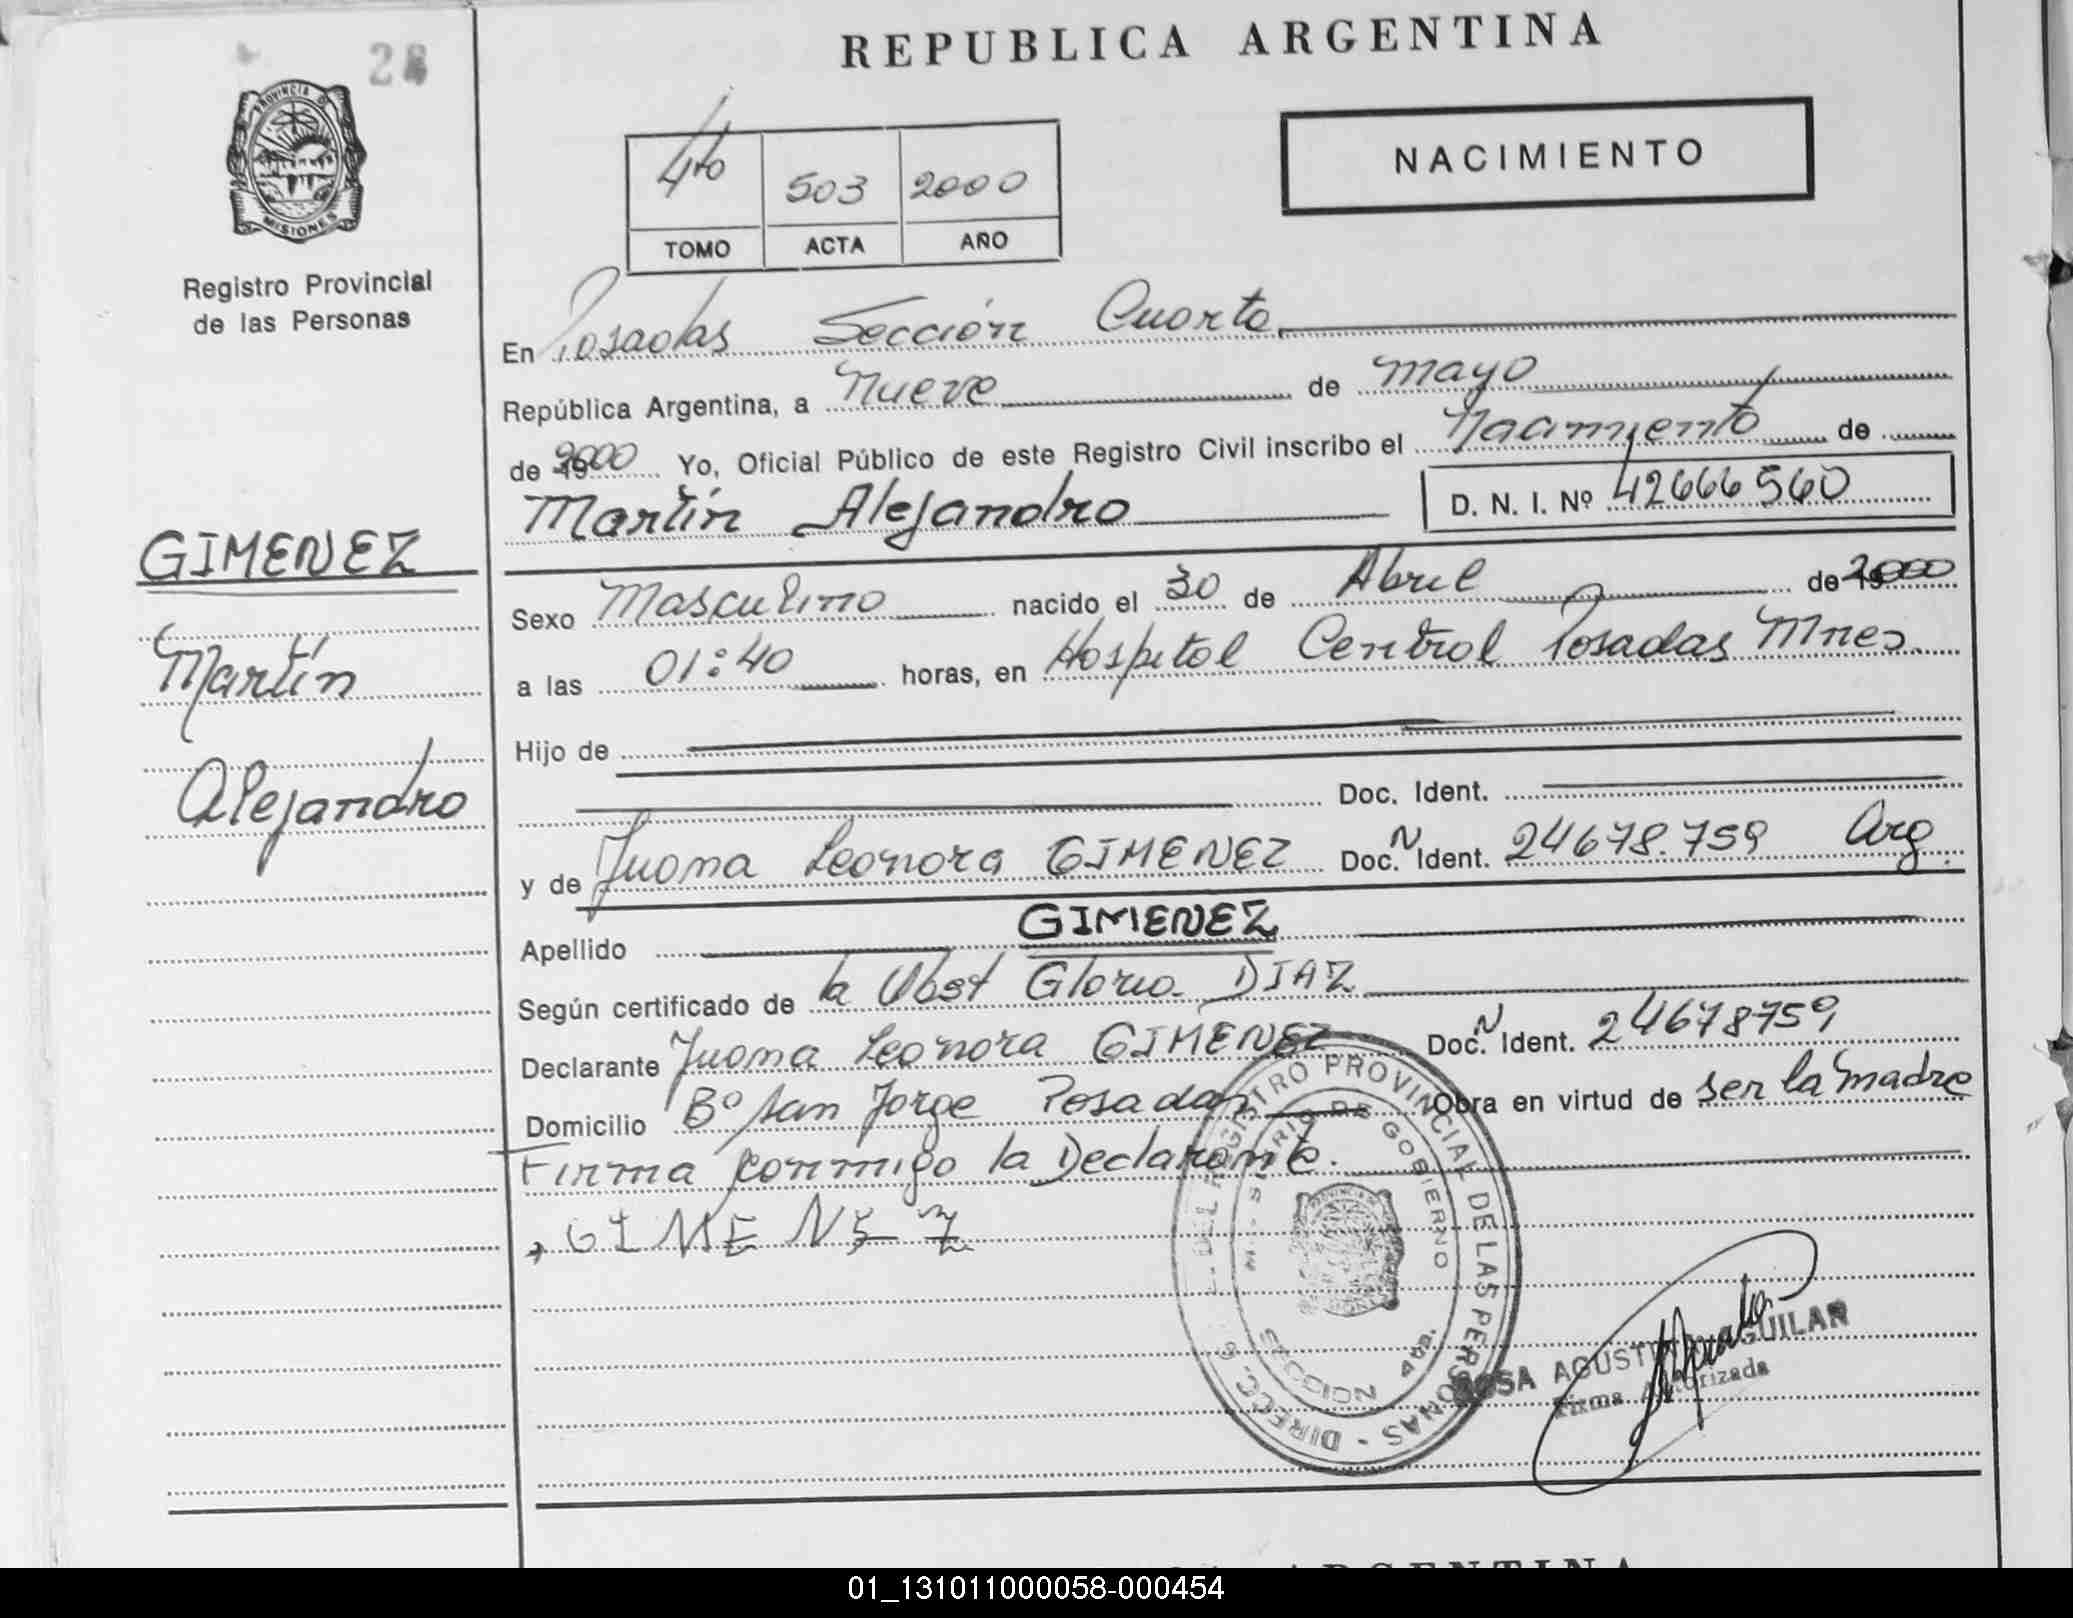 28
REPUBLICA ARGENTINA
PROVINCIA DE
MISIONES
Registro Provincial
de las Personas
4to 503 2000
TOMO ACTA AÑO
NACIMIENTO
En Posadas Sección Cuarta
República Argentina, a nueve de mayo
de 2000 Yo, Oficial Público de este Registro Civil inscribo el Nacimiento de
Martín Alejandro D. N. I. Nº 42666560
GIMENEZ
Martín
Alejandro
Sexo Masculino nacido el 30 de Abril de 2000
a las 01:40 horas, en Hospital Central Posadas Mnes.
Hijo de
Doc. Ident.
y de Juana Leonora GIMENEZ Doc. N Ident. 24678.759 Arg.
Apellido GIMENEZ
Según certificado de la Obst Gloria DIAZ
Declarante Juana Leonora GIMENEZ Doc. N Ident. 24678759
Domicilio Bº San Jorge Posadas Obra en virtud de ser la madre
Firma conmigo la Declarante.
GIMENEZ
REGISTRO PROVINCIAL DE LAS PERSONAS - DIRECC. G
DE GOBIERNO
ROSA AGUSTINA AGUILAR
Firma Autorizada
ARGENTINA
01_131011000058-000454